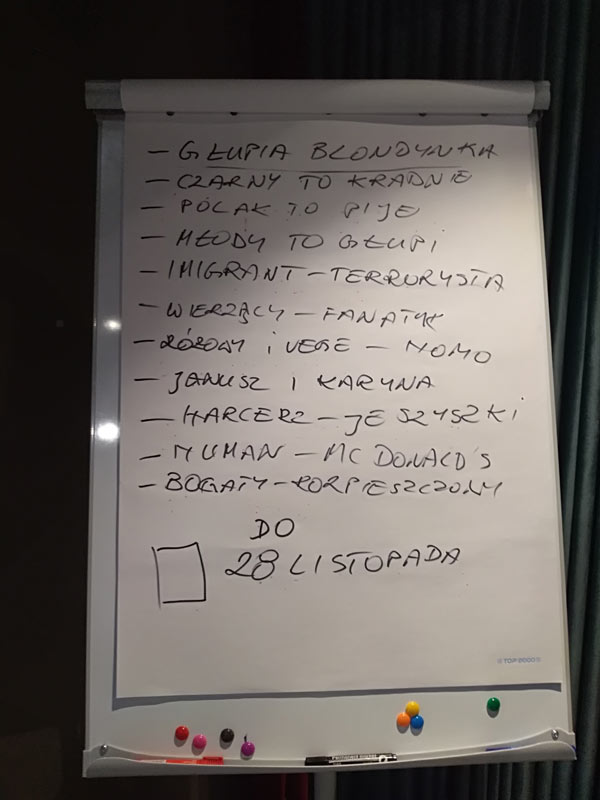 – GŁUPIA BLONDYNKA
– CZARNY TO KRADNIE
– POLAK TO PIJE
– MŁODY TO GŁUPI
– IMIGRANT – TERRORYSTA
– WIERZĄCY – FANATYK
– RÓŻOWY i VEGE – HOMO
– JANUSZ I KARYNA
– HARCERZ – JE SZYSZKI
– HUMAN – MC DONALD'S
– BOGATY – ROZPIESZCZONY
DO
28 LISTOPADA
TOP 2000